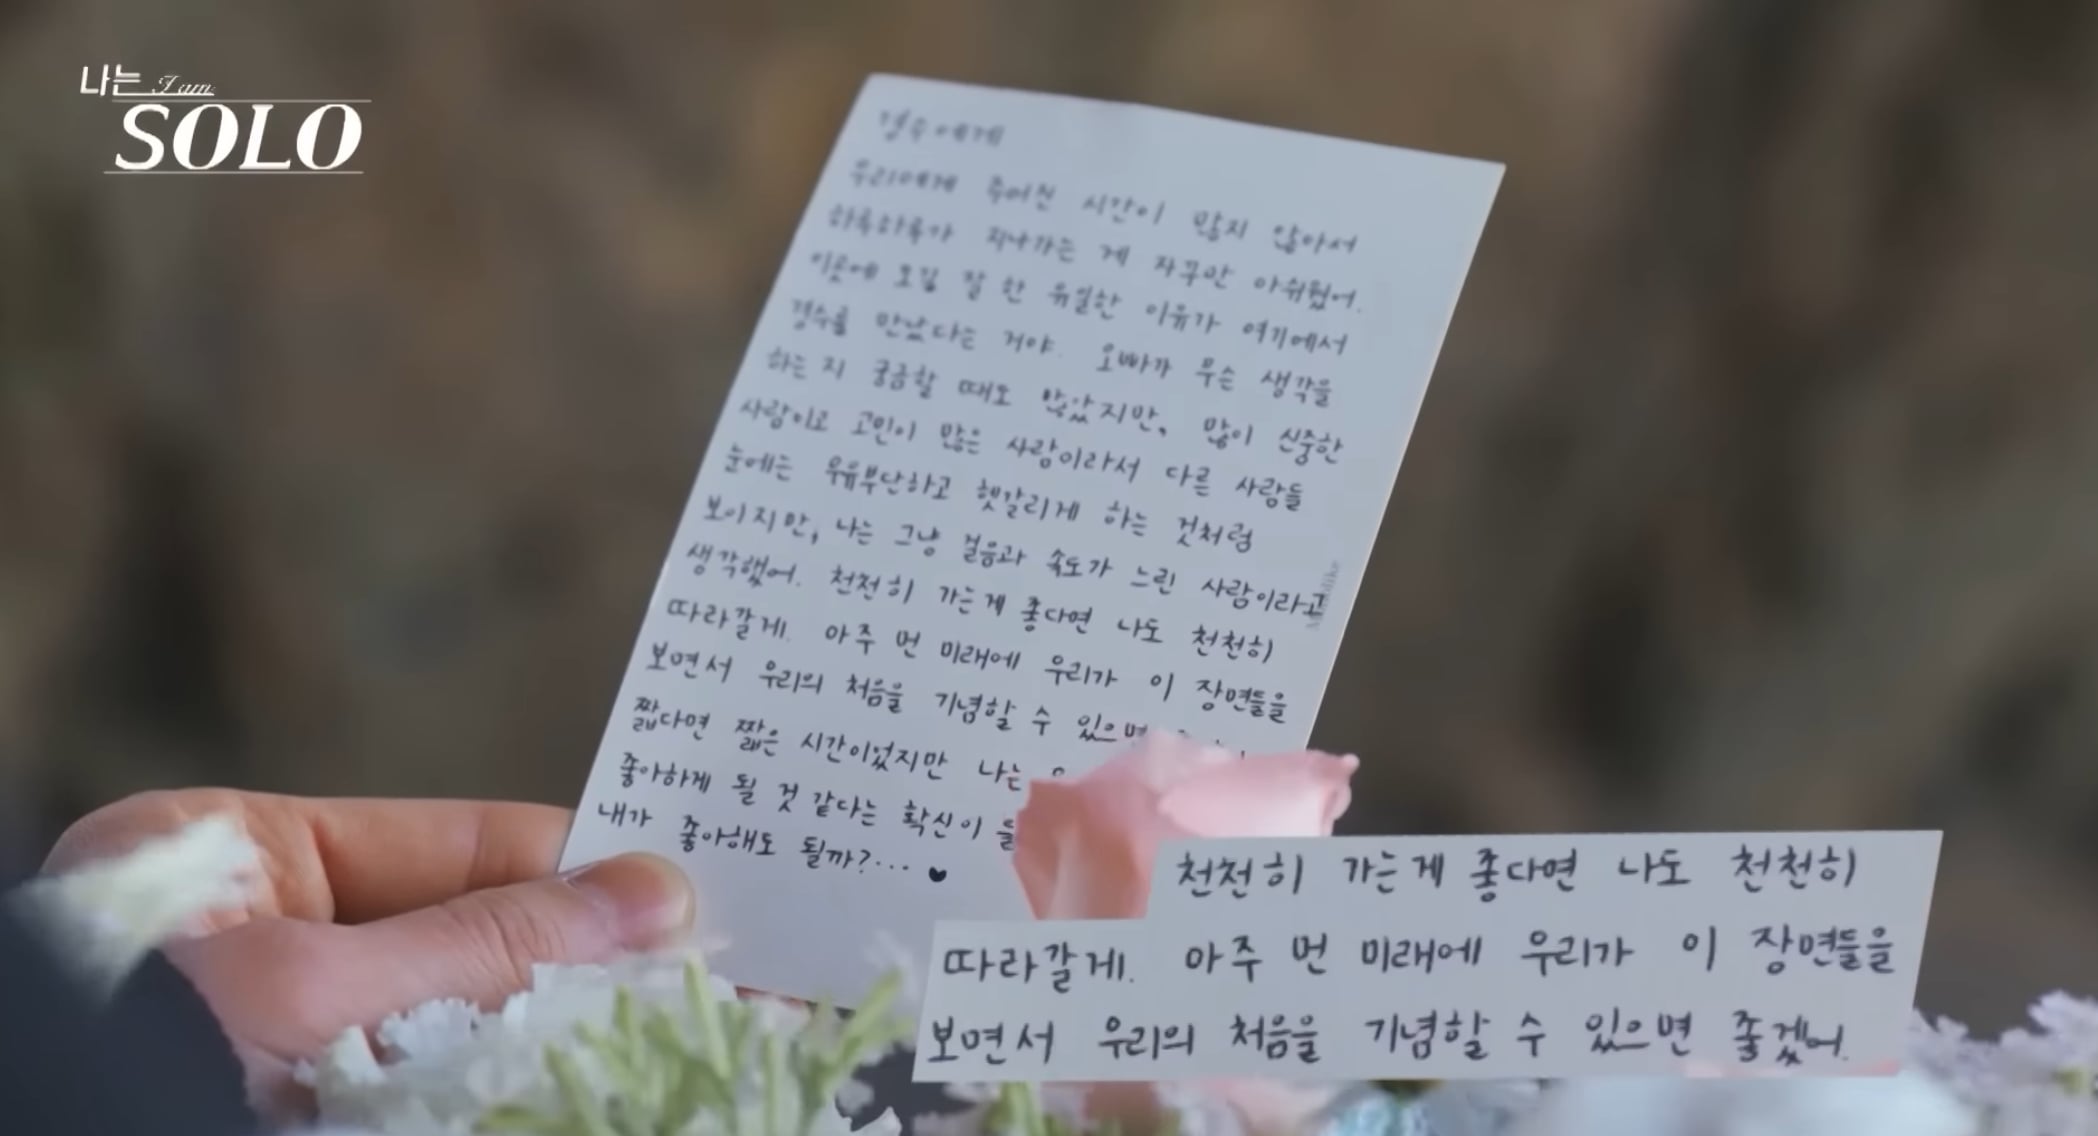 나는 I am
SOLO
경수에게
우리에게 주어진 시간이 많지 않아서
하루하루가 지나가는 게 자꾸만 아쉬웠어.
이곳에 오길 잘 한 유일한 이유가 여기에서
경수를 만났다는 거야. 오빠가 무슨 생각을
하는 지 궁금할 때도 많았지만, 많이 신중한
사람이고 고민이 많은 사람이라서 다른 사람들
눈에는 우유부단하고 헷갈리게 하는 것처럼
보이지만, 나는 그냥 걸음과 속도가 느린 사람이라고
생각했어. 천천히 가는게 좋다면 나도 천천히
따라갈게. 아주 먼 미래에 우리가 이 장면들을
보면서 우리의 처음을 기념할 수 있으면
짧다면 짧은 시간이었지만 나는
좋아하게 될 것 같다는 확신이
내가 좋아해도 될까?... ♥
천천히 가는게 좋다면 나도 천천히
따라갈게. 아주 먼 미래에 우리가 이 장면들을
보면서 우리의 처음을 기념할 수 있으면 좋겠어.